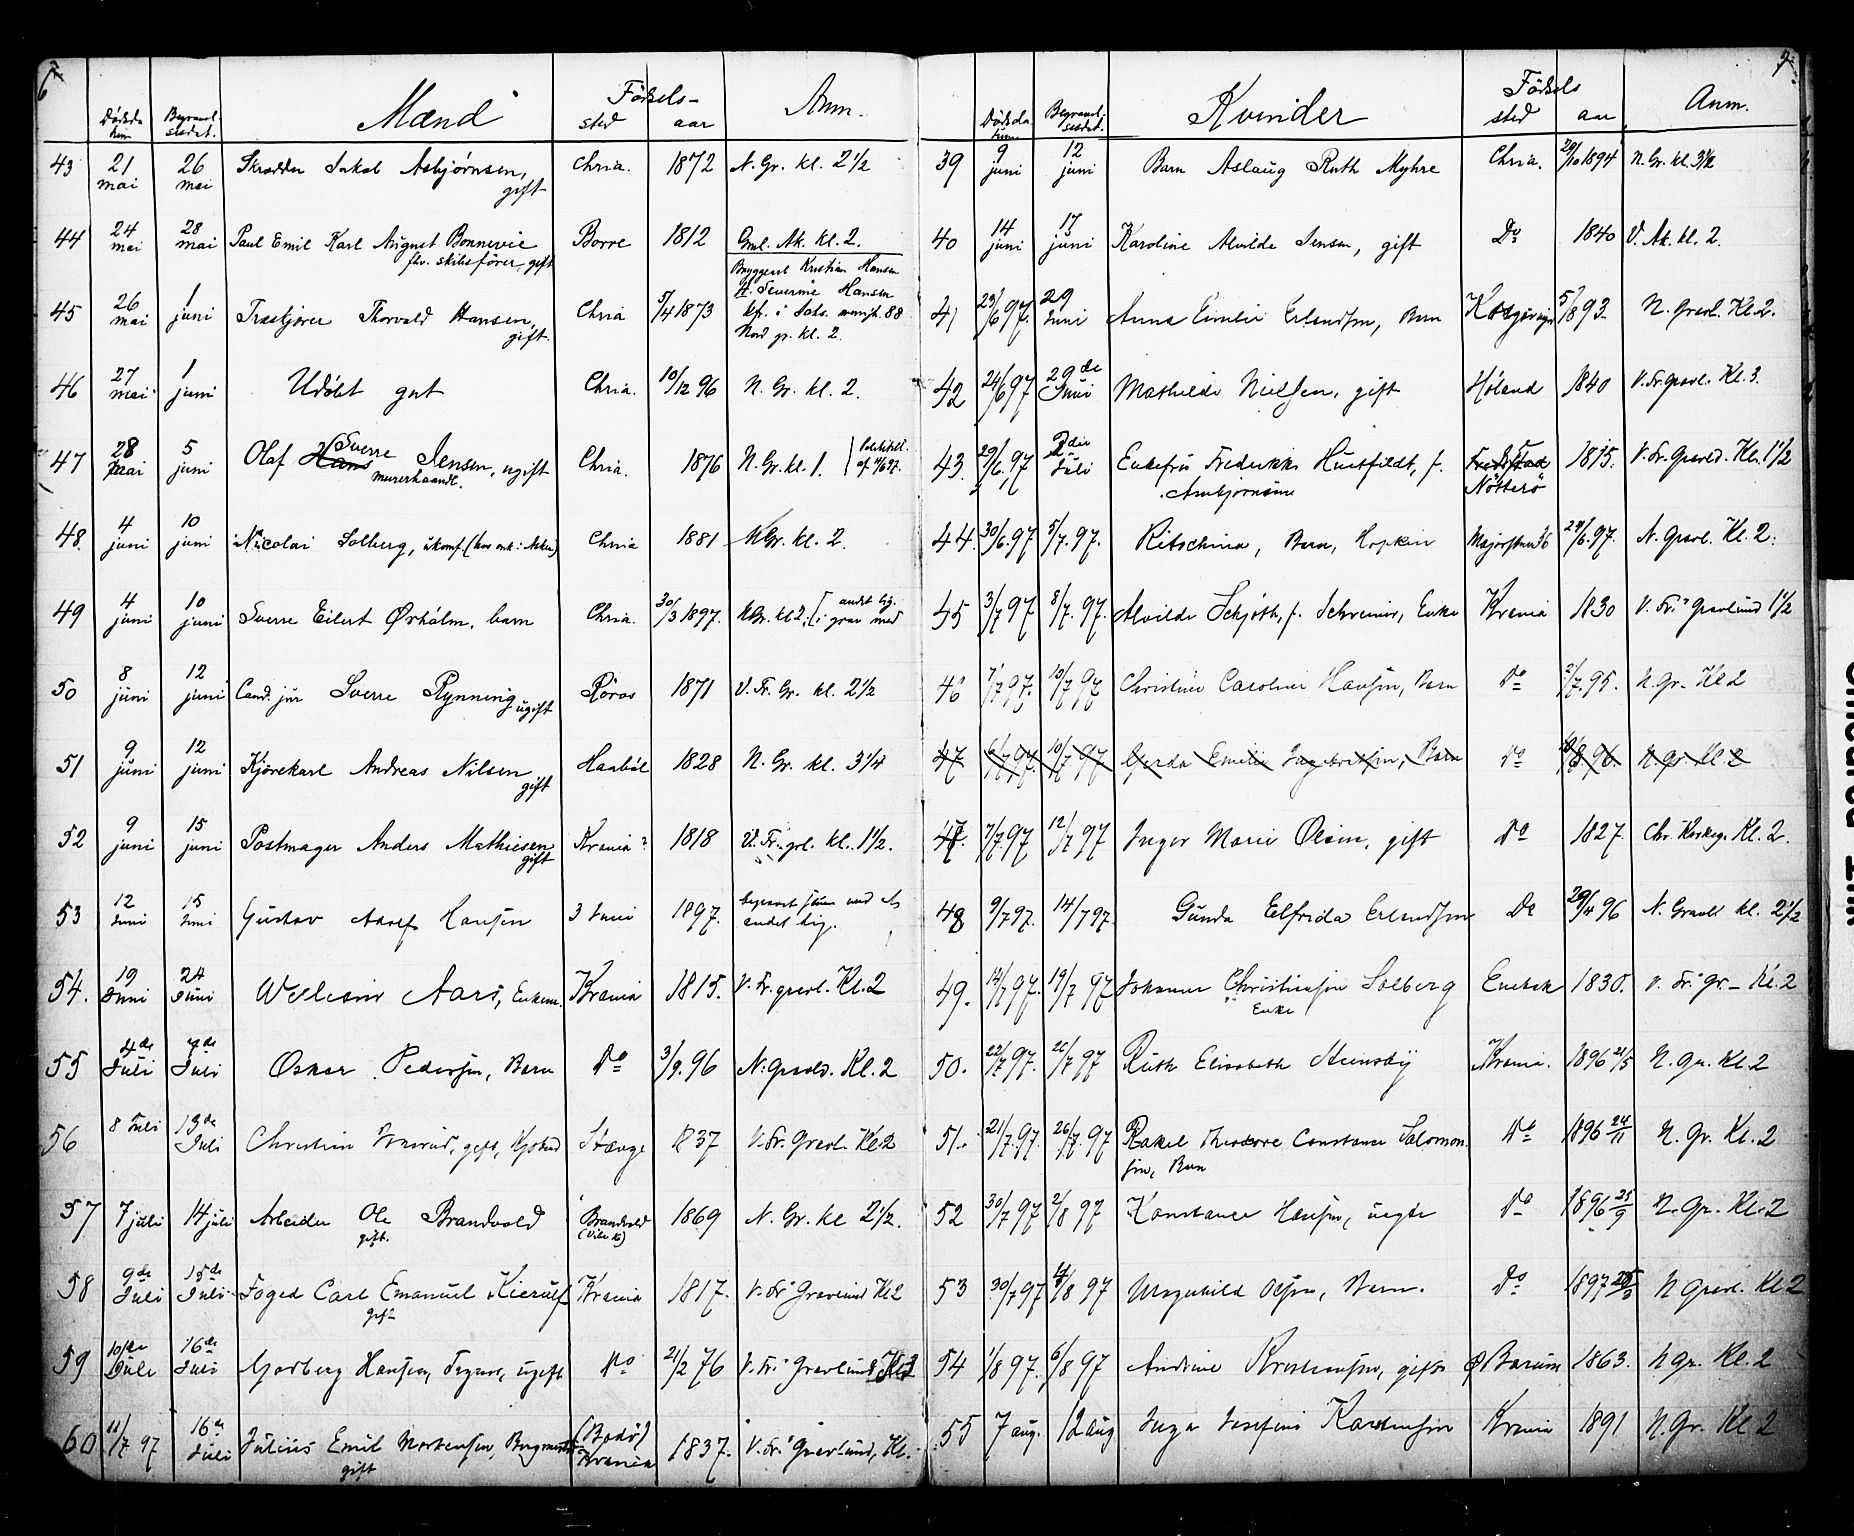 6
Mænd
Fødsels-
Anm.
Dødsda
tum
Begravel
sesdat.
sted aar
43 21 mai 26 mai Skrædder Jakob Asbjørnsen, gift Chria. 1872 N. Gr. kl. 2½
44 24 mai 28 mai Paul Emil Karl August Bonnevie Borre 1812 Gml. Ak. kl. 2.
fhv. skibsfører, gift
Bryggearb Kristian Hansen
Severine Hansen
45 26 mai 1 juni Thorvald Hansen, gift. Chria 5/4 1873
Nord gr. kl. 2.
46 27 mai 1 juni Udøbt gut Chria. 10/12 96 N. Gr. kl. 2.
47 28 mai 5 juni Olaf Hans Sverre Jensen, ugift Chria. 1876 N. Gr. kl. 1.
murerhaandl.
48. 4 juni 10 juni Nicolai Solberg, ukonf. Chria 1881 N Gr. kl. 2.
49 4 juni 10 juni Sverre Eilert Ørholm, barn Chria. 30/3 1897. N Gr. kl 2, andet lig. i grav med
50 8 juni 12 juni Cand. jur Sverre Rynning ugift Røros 1871 V. Fr. Gr. kl. 2½
51 9 juni 12 juni Kjørekarl Andreas Nilsen gift Haabøl 1828 N. Gr. kl. 3¼
52 9 juni 15 juni Postmager Anders Mathiesen gift Krania? 1818 V. Fr. grl. kl. 1½.
53 12 Juni 15 Juni Gustav Adolf Hansen 3 Juni 1897. begravet med et
andet lig.
54. 19 Juni 24 Juni Aars, Enkem. Krania 1815. V. Fr. gravl. Kl. 2
55 4de Juli 7de Juli Oskar Pedersen, Barn Do 3/9. 96 N. Gravl. Kl. 2
56 8 Juli 13de Juli Christian gift, Stange 1837 V. Fr. Gravl. Kl 2
57 7 juli 14 juli Arbeider Ole Brandvold gift. Brandvold 1869 N. Gr. kl 2½.
58 9de Juli 15de Juli Foged Carl Emanuel Kierulf gift Krania 1817. V. Fr Gravlund Kl 2
59 10de Juli 16de Juli Hansen, ugift Do 21/2 76 V. Fr. Gravlund
60 11/7 97 16de Juli Julius Emil Mortensen, gift (Bodø) Krania 1837. V. Fr. Gravlund, Kl.
7
Kvinder
Fødsels
Anm.
Dødsda
tum
Begravel
sesdat.
sted aar
39 9 juni 12 juni Barn Aslaug Ruth Myhre Chria. 29/10 1894 N. Gr. kl. 3½
40 14 juni 17 juni Karoline Alvilde Jensen, gift Do 1840 V. Ak. kl. 2.
41 23/6 97. 29 Juni Anna Emilie Erlendsen, Barn 5/8 93. N. Gravl. Kl. 2.
42 24/6 97 29de Juni Mathilde Nielsen, gift Høland 1840 V. Fr. Gravl. Kl. 3.
43. 29/6. 97 2den Juli Enkefru Fredrikke Huitfeldt, f. Fredriksstad 1815. V. Fr. Gravl. Kl. 1½
Ambjørnsen Nøtterø
44. 30/6. 97 5/7. 97. Ritschina, Barn, Hopkin Majorstuen 36 29/6. 97. N. Gravl. Kl. 2.
45 3/7 97 8/7. 97. Alvilde Schjøth, f. Schreiner, Enke Krania 1830 V. Fr. Gravlund 1½
46 7/7 97. 10/7 97 Christine Caroline Hansen, Barn Do 2/7. 95. N. Gr. Kl 2
47 6/7 97. 10/7 97 Gerda Emilie Ingebretsen, Barn Do 10/8 96. N. gr Kl 2
47. 7/7 97 12/7 97 Inger Marie Olsen, gift Do 1827. Chr. Kirkeg. Kl. 2.
48 9/7 97. 14/7 97. Gunda Elfrida Erlendsen Do 29/4 96 N. Gravl kl. 2½
49. 14/7 97. 19/7 97 Johanne Christiansen Solberg Enebak 1830. V. Fr. Gr. Kl. 2
Enke
50. 22/7 97. 26/7 97 Ruth Elisabeth Stensby Krania. 1896 21/5 N. Gr. Kl. 2
51. 21/7. 97. 26/7. 97 Rakel Theodore Constance Salomon- Do 1896 24/11 N. Gr. Kl. 2
sen, Barn
52 30/7 97 2/8 97 Konstance Hansen, ugift Do 1896 25/9 N. Gr. Kl. 2
53 30/7 97 4/8 97 Ragnhild Olsen, Barn. Do 1897 N Gravl. Kl 2
54 1/8 97. 6/8 97 Andrine Kristiansen, gift Ø Bærum 1863. N Gr. Kl. 2
55 7 aug. 12 aug Inga Josefine Karstensen Krania 1891 N. Gr. Kl 2